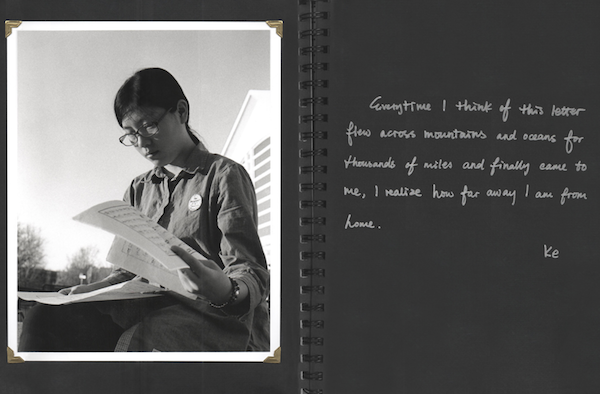 Everytime I think of this letter
flew across mountains and oceans for
thousands of miles and finally came to
me, I realize how far away I am from
home.
Ke